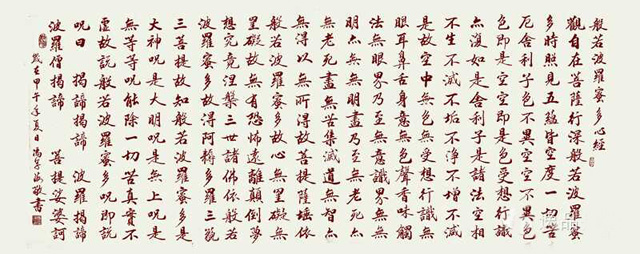 般若波羅蜜多心經
觀自在菩薩行深般若波羅蜜
多時照見五蘊皆空度一切苦
厄舍利子色不異空空不異色
色即是空空即是色受想行識
亦復如是舍利子是諸法空相
不生不滅不垢不淨不增不減
是故空中無色無受想行識無
眼耳鼻舌身意無色聲香味觸
法無眼界乃至無意識界無無
明亦無無明盡乃至無老死亦
無老死盡無苦集滅道無智亦
無得以無所得故菩提薩埵依
般若波羅蜜多故心無罣礙無
罣礙故無有恐怖遠離顛倒夢
想究竟涅槃三世諸佛依般若
波羅蜜多故得阿耨多羅三藐
三菩提故知般若波羅蜜多是
大神呪是大明呪是無上呪是
無等等呪能除一切苦真實不
虛故說般若波羅蜜多呪即說
呪曰 揭諦揭諦 波羅揭諦
波羅僧揭諦 菩提娑婆訶
歲在甲午年夏日 敬書
逸品